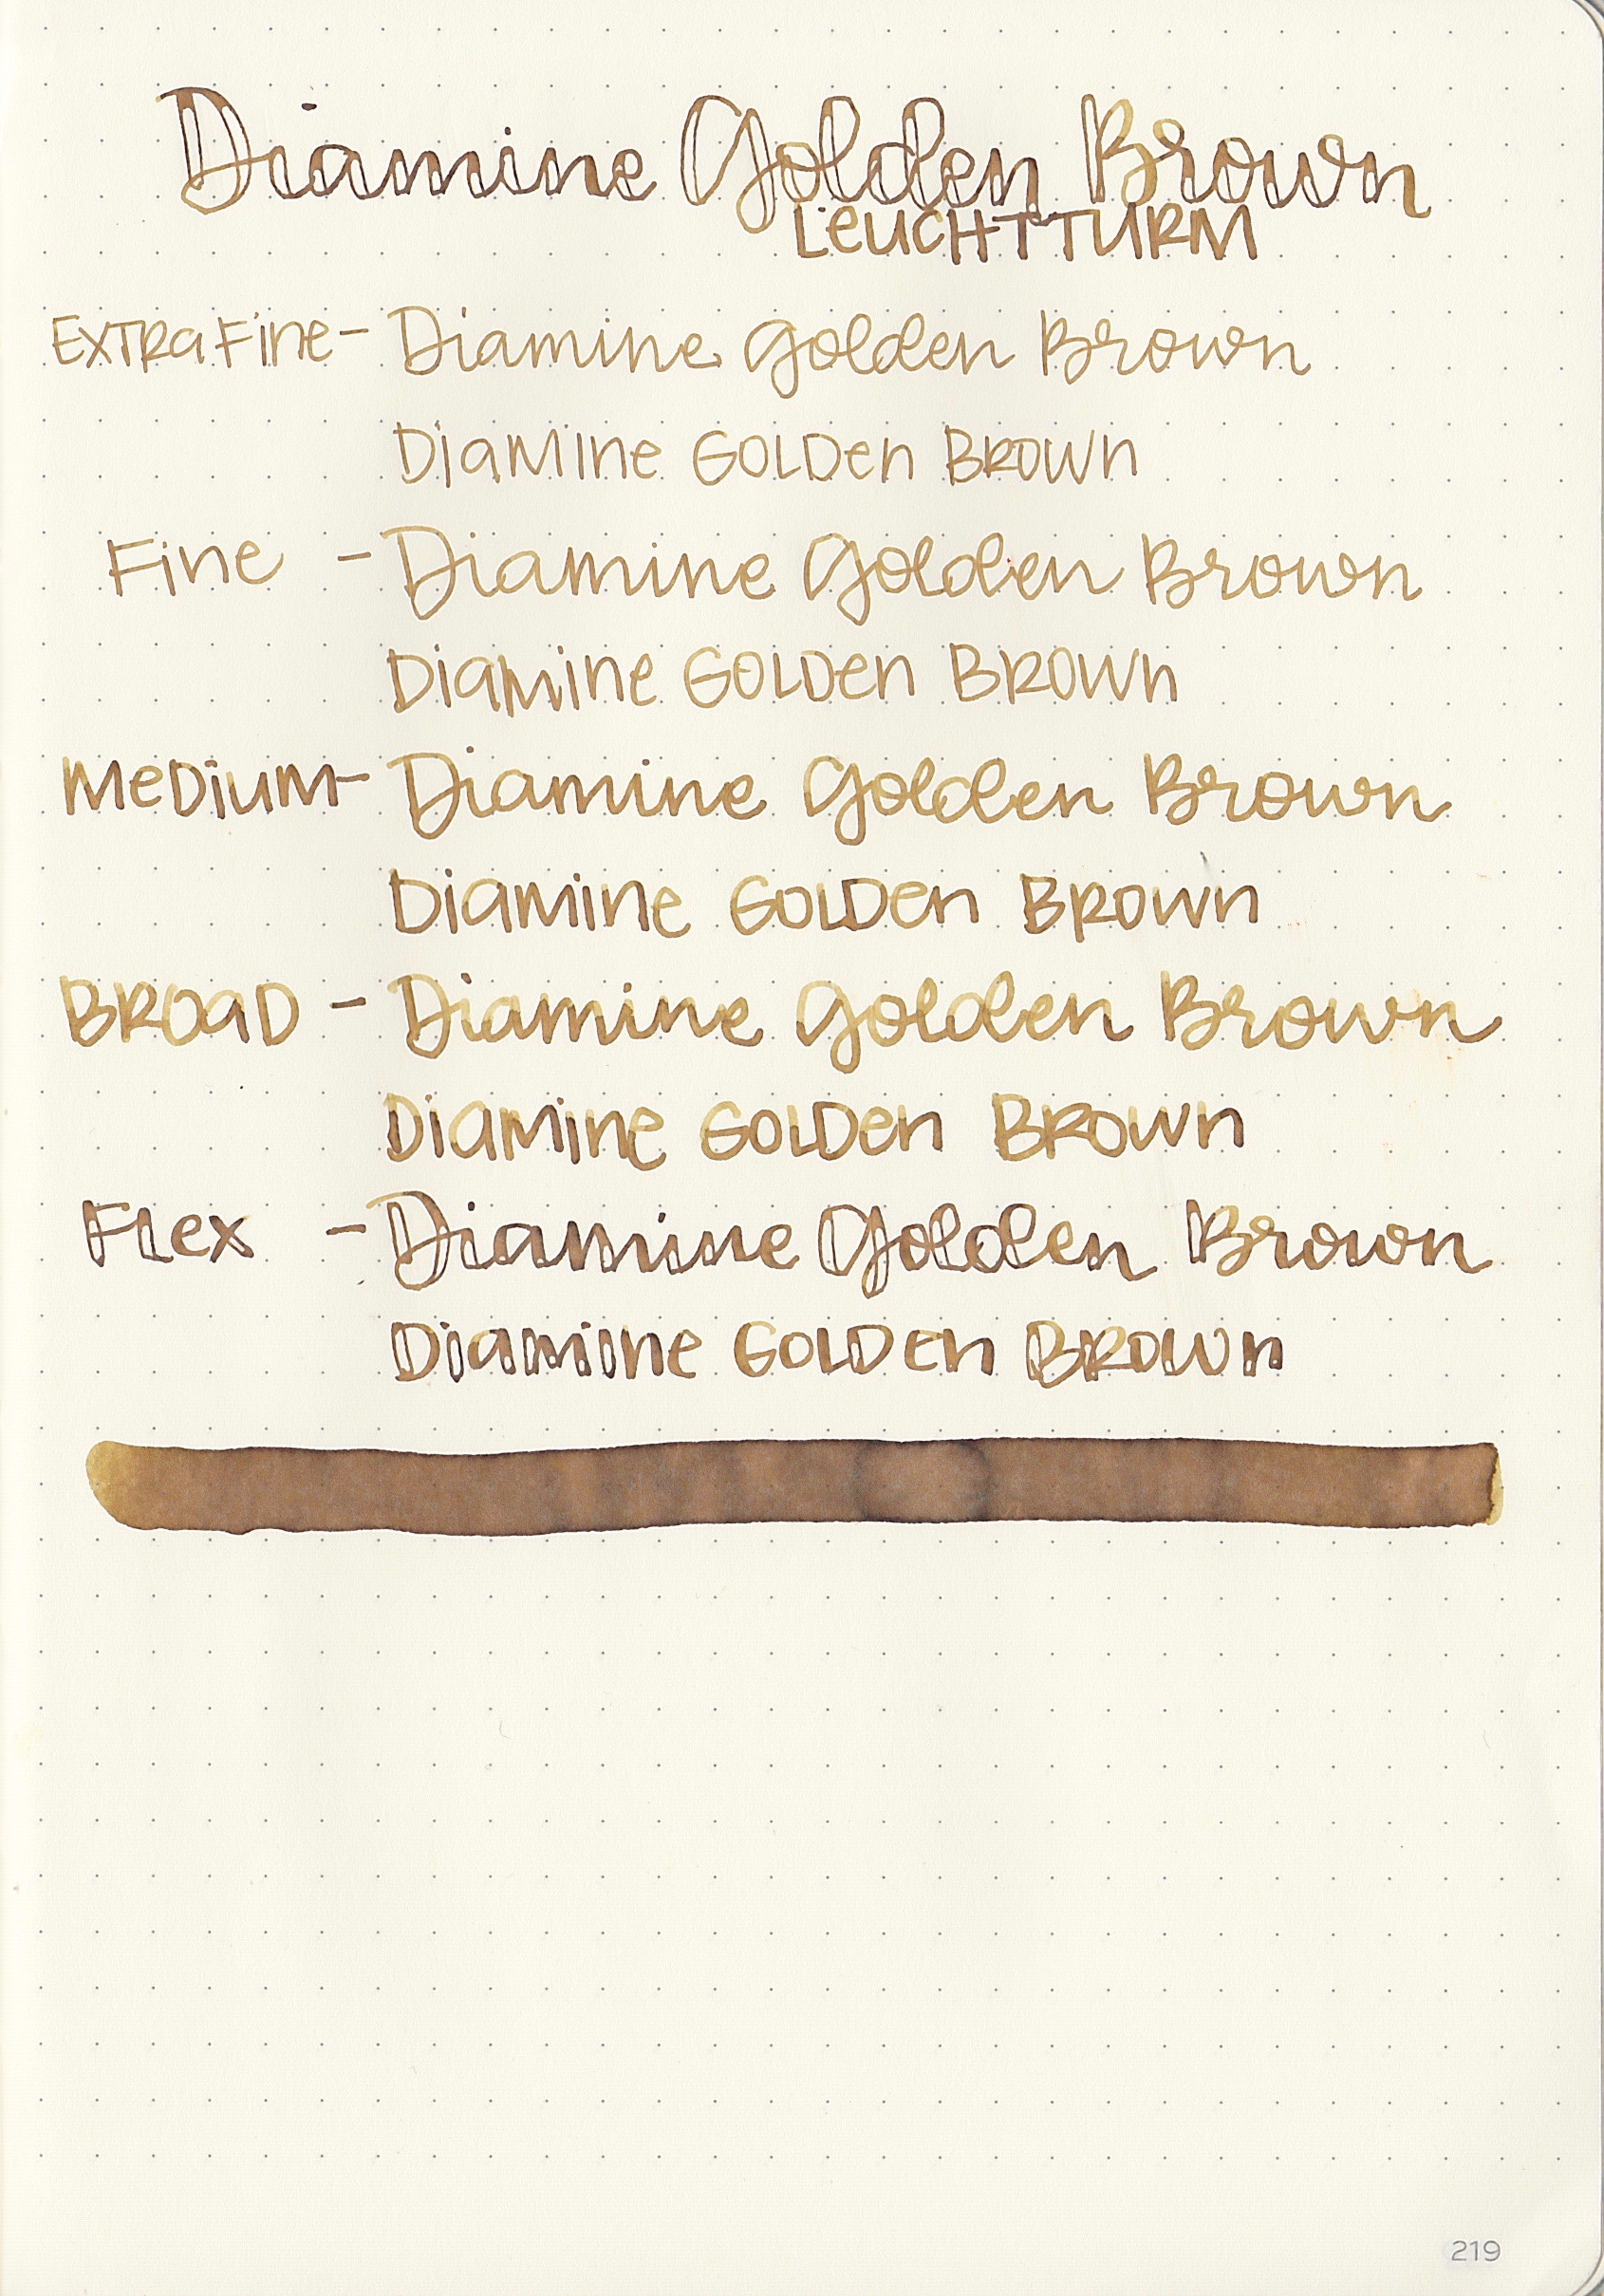 Diamine Golden Brown
LEUCHTTURM
EXTRA FINE - Diamine Golden Brown
DIAMINE GOLDEN BROWN
FINE - Diamine Golden Brown
DIAMINE GOLDEN BROWN
MEDIUM - Diamine Golden Brown
DIAMINE GOLDEN BROWN
BROAD - Diamine Golden Brown
DIAMINE GOLDEN BROWN
FLEX - Diamine Golden Brown
DIAMINE GOLDEN BROWN
219